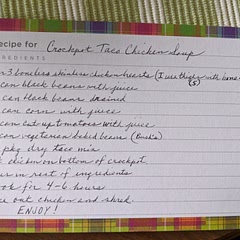 ecipe for Crockpot Taco Chicken Soup
REDIENTS
3 boneless skinless chicken breasts (I use thighs with bone
(5)
can black beans with juice
can black beans drained
can corn with juice
can cut up tomatoes with juice
can vegetarian baked beans (Bush's)
pkg dry taco mix
chicken on bottom of crockpot
ur in rest of ingredients
ook for 4-6 hours
ke out chicken and shred.
ENJOY!